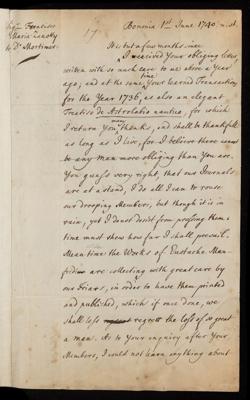 Francisc.
Maria Zanotty
to Dr Mortimer.
17
Bononia 1st June 1740. n. st.
It is but a few months since
I received Your obliging letter
written with so much care to me above a Year
ago; and at the same time Your learned Transactions
for the Year 1736, as also an elegant
Treatise de Astrolabio nautico, for which
I return You many thanks, and shall be thankfull
as long as I live, for I believe there
be any man more obliging than You are.
You guess very right, that our Journals
are at a stand, I do all I can to rouse
our drooping Members, but though it is in
vain, yet I do not desist from pressing them.
time must show how far I shall prevail.
Mean time the Works of Eustache Man-
fredi are collecting with great care by
our Friars, in order to have them printed
and published, which if once done, we
shall less regrett the loss of so great
a man. As to Your enquiry after Your
Members, I could not learn anything about